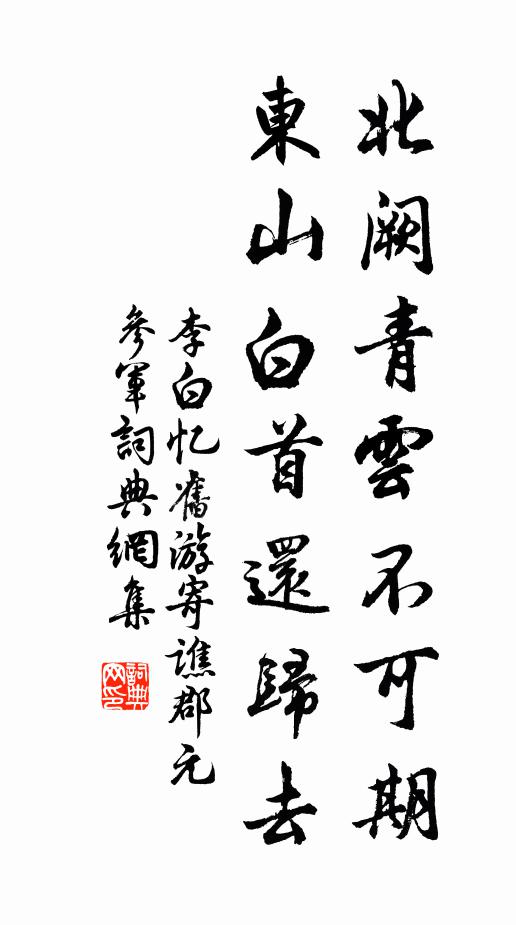 北闕青雲不可期
東山白首還歸去
李白忆舊游寄譙郡元
參軍詞典網集
詞典网印